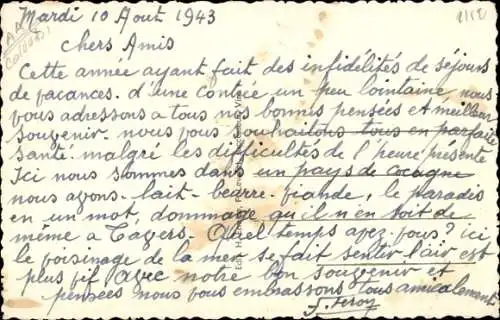 Mardi 10 Aout 1943
Chers Amis
Cette année ayant fait des infidélités de séjours
de vacances. d'une contrée un peu lointaine nous
vous adressons a tous nos bonnes pensées et meilleur
souvenir. nous vous souhaitons tous en parfaite
santé malgré les difficultés de l'heure présente
Ici nous sommes dans un pays de cocagne
nous avons. lait. beurre. viande, le paradis
en un mot, dommage qu'il n'en soit de
même a Quel temps avez-vous? ici
le voisinage de la mer se fait sentir l'air est
plus vif, avec notre bon souvenir et
pensées nous vous embrassons tous amicalement